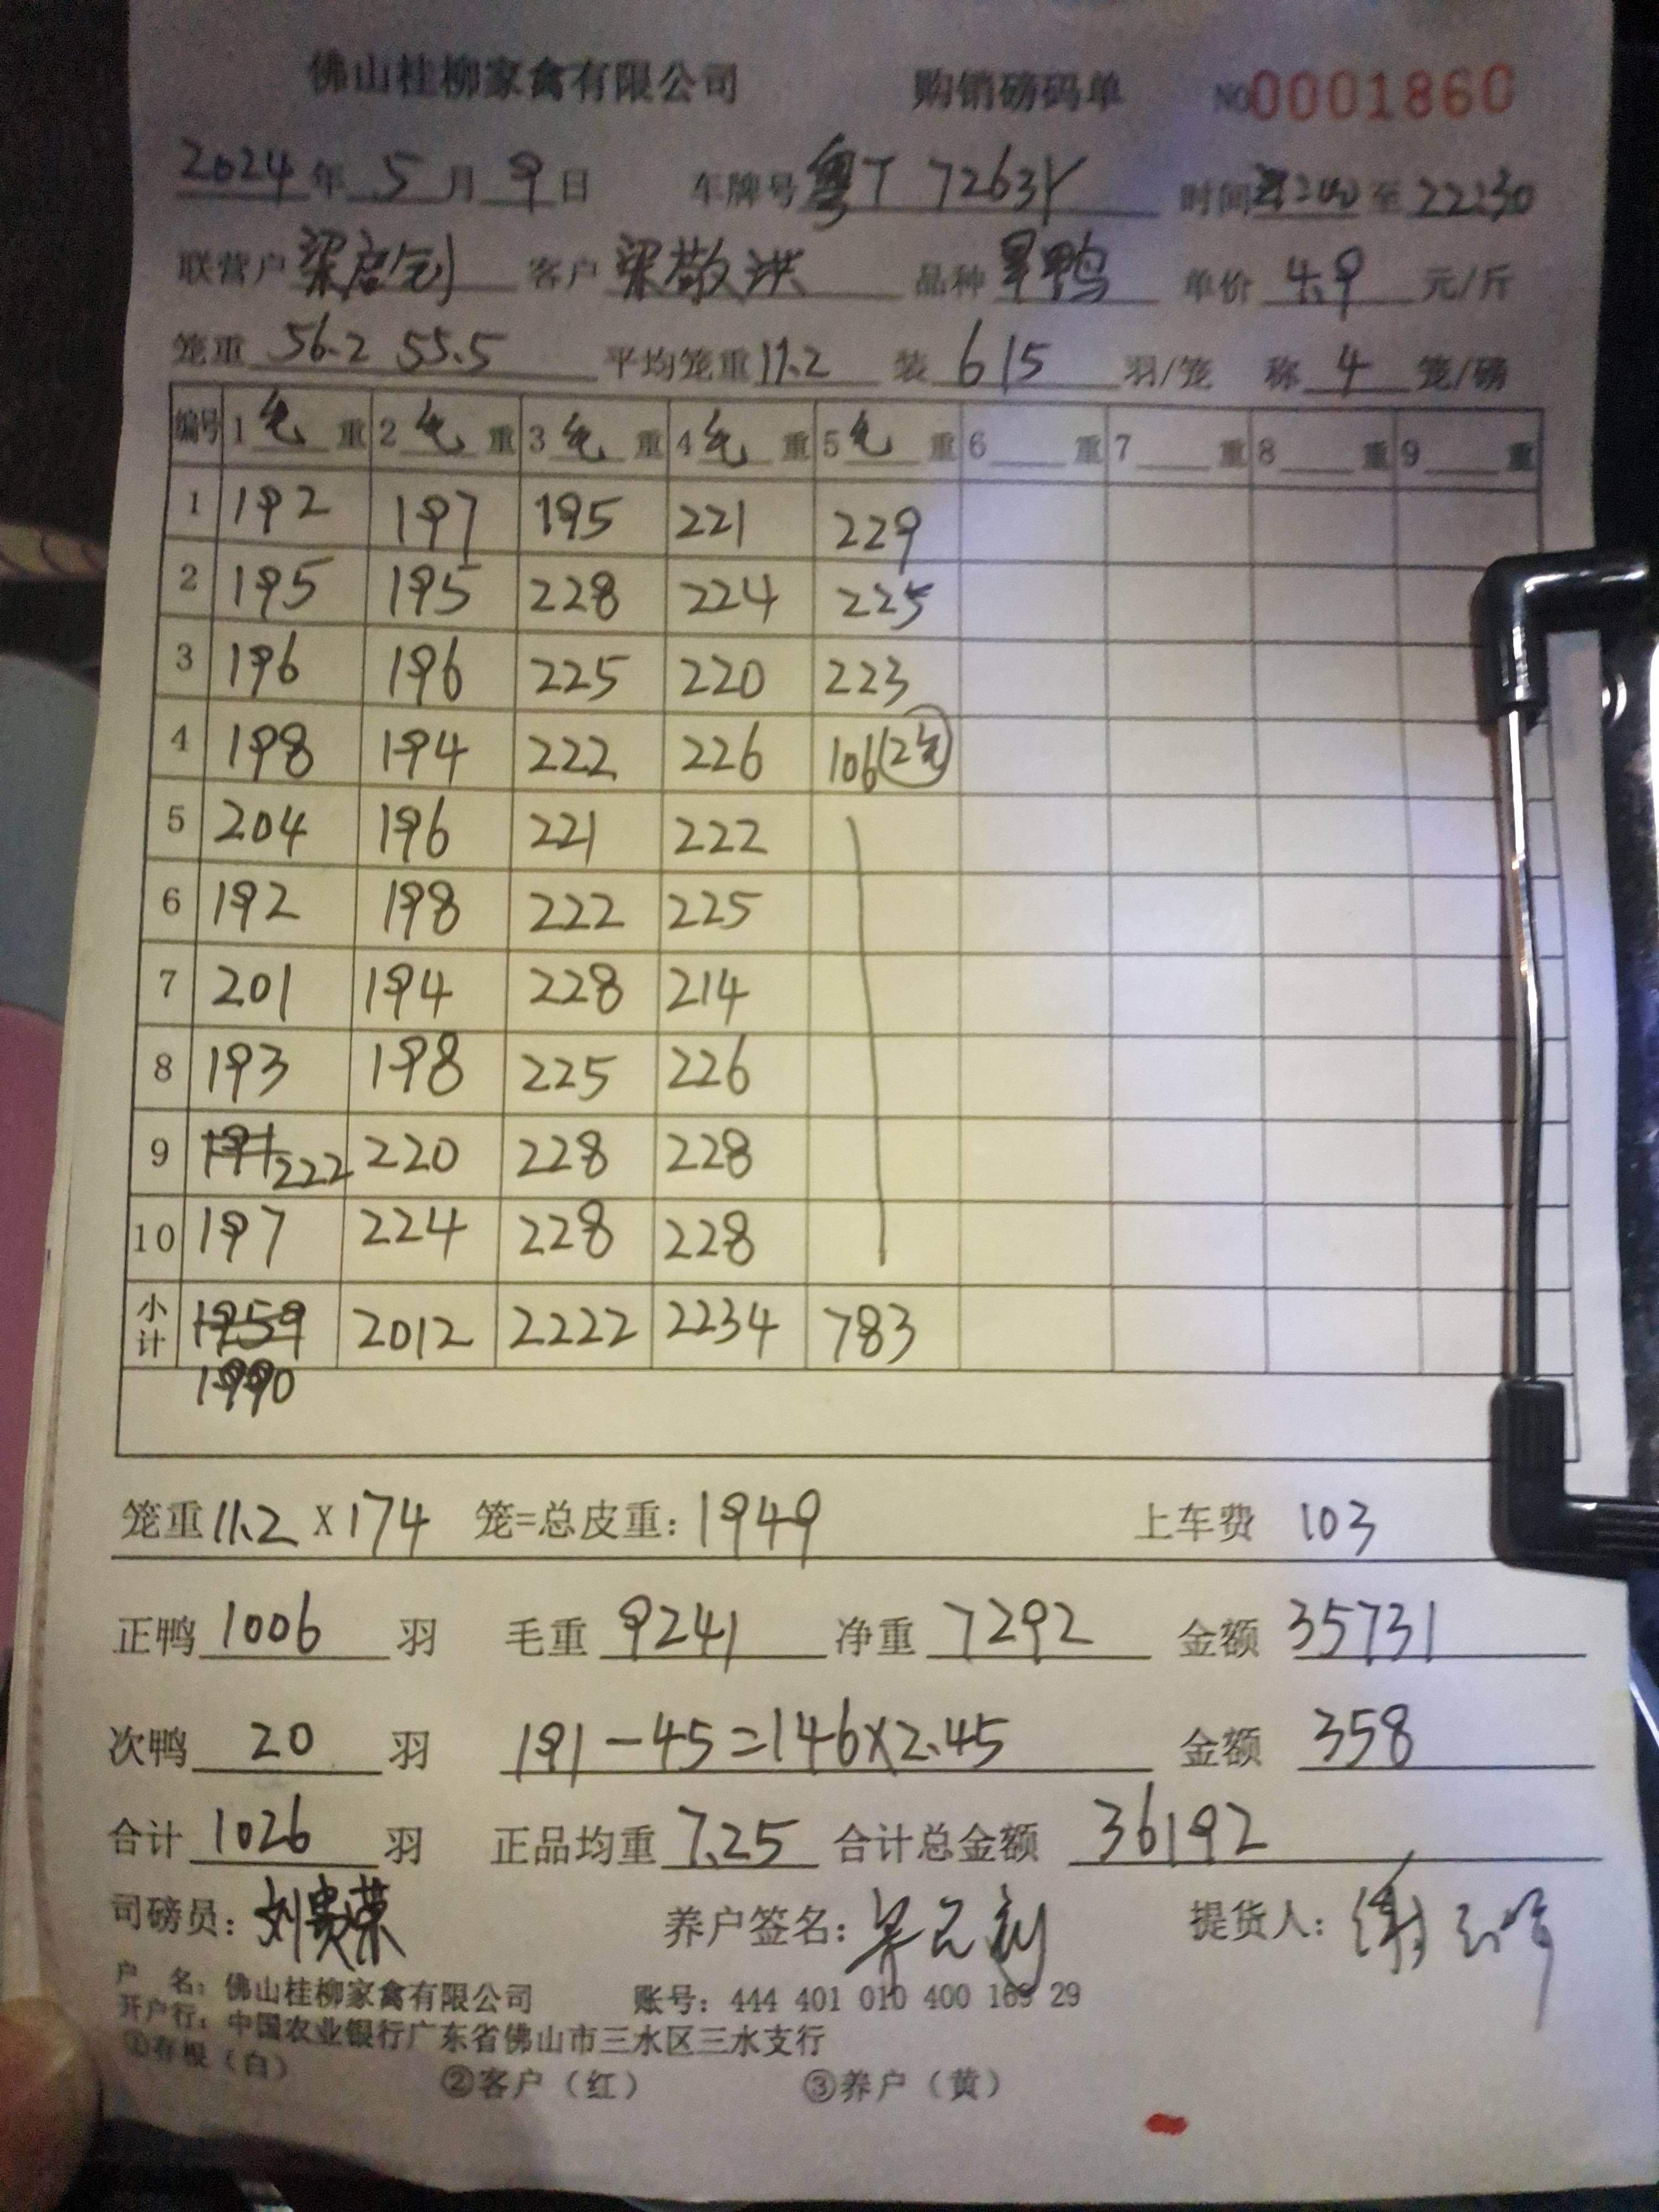 佛山桂柳家禽有限公司 购销磅码单 NO0001860
2024年5月9日 车牌号粤T 7263Y 时间 至22:30
联营户 客户梁敬洪 品种旱鸭 单价4.9元/斤
笼重56.2 55.5 平均笼重11.2 装6 15羽/笼 称4笼/磅
编号 1毛重 2毛重 3毛重 4毛重 5毛重 6重 7重 8重 9重
1 192 197 195 221 229
2 195 195 228 224 225
3 196 196 225 220 223
4 198 194 222 226 106(2笼)
5 204 196 221 222
6 192 198 222 225
7 201 194 228 214
8 193 198 225 226
9 191 222 220 228 228
10 197 224 228 228
小计 1959 2012 2222 2234 783
1990
笼重11.2×174笼=总皮重:1949 上车费 103
正鸭1006羽 毛重9241 净重7292 金额35731
次鸭20羽 191-45=146×2.45 金额358
合计1026羽 正品均重7.25 合计总金额36192
司磅员:刘贵荣 养户签名: 提货人:
户 名:佛山桂柳家禽有限公司 账号:444 401 010 400 169 29
开户行:中国农业银行广东省佛山市三水区三水支行
①存根(白) ②客户(红) ③养户(黄)